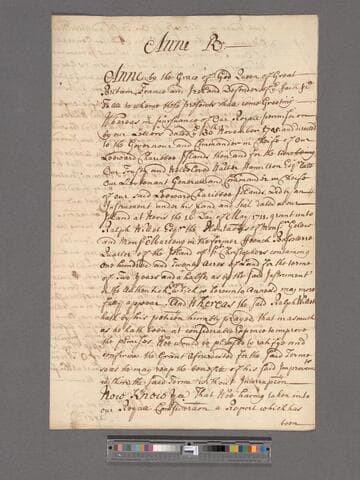 Anne R
Anne by the Grace of God Queen of Great
Britain France and Ireland Defender of ye Faith &c
To all to whom these presents shall come Greeting
Whereas in pursuance of Our Royal permission
by our Letters dated ye November and directed
to the Governour and Commander in Cheife of Our
Leeward Charibbee Islands then and for the time being
Our Trusty and Welbeloved Walter Hamilton Esqr late
Our Lieutenant Generall and Commander in Cheife
of our said Leeward Charibbee Islands Did by an
Instrument under his hand and Seal dated at our
Island of Nevis the 16 Day of May 1711 grant unto
Ralph Willet Esqr the Plantations of Monsr
and Monsr in the former French
Quarter of the Island of St Christophers containing
one hundred and Twenty acres of Land for the terme
of Two years and a halfe as by the said Instrument
and a which is hereunto Annexed may more
fully appear. And Whereas the said Ralph Willet
hath by his petition humbly prayed that in as much
as he hath been at considerable expence to improve
the premises We would be pleased to ratify and
confirm the Grant aforesaid for the said Terme
so as he may reap the benefit of his said Improvem
within the said Terme without Interruption
Now Know Yee That Wee having taken into
our Royall Consideration a Report which has
been